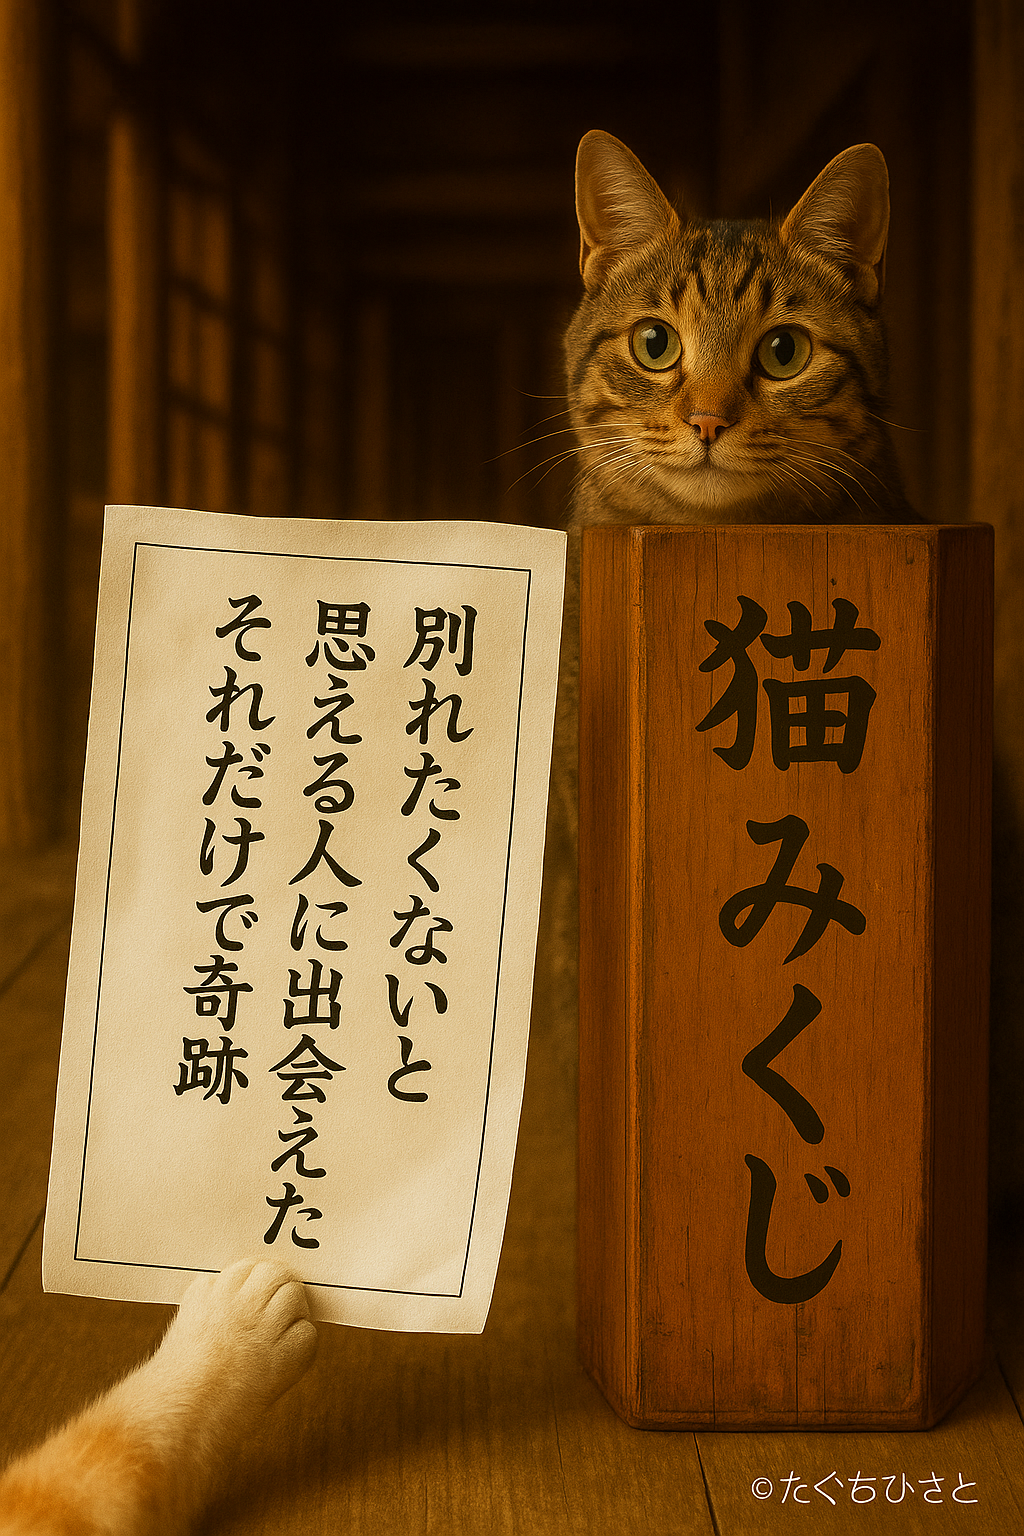 別れたくないと
思える人に出会えた
それだけで奇跡
猫みくじ
©たぐちひさと